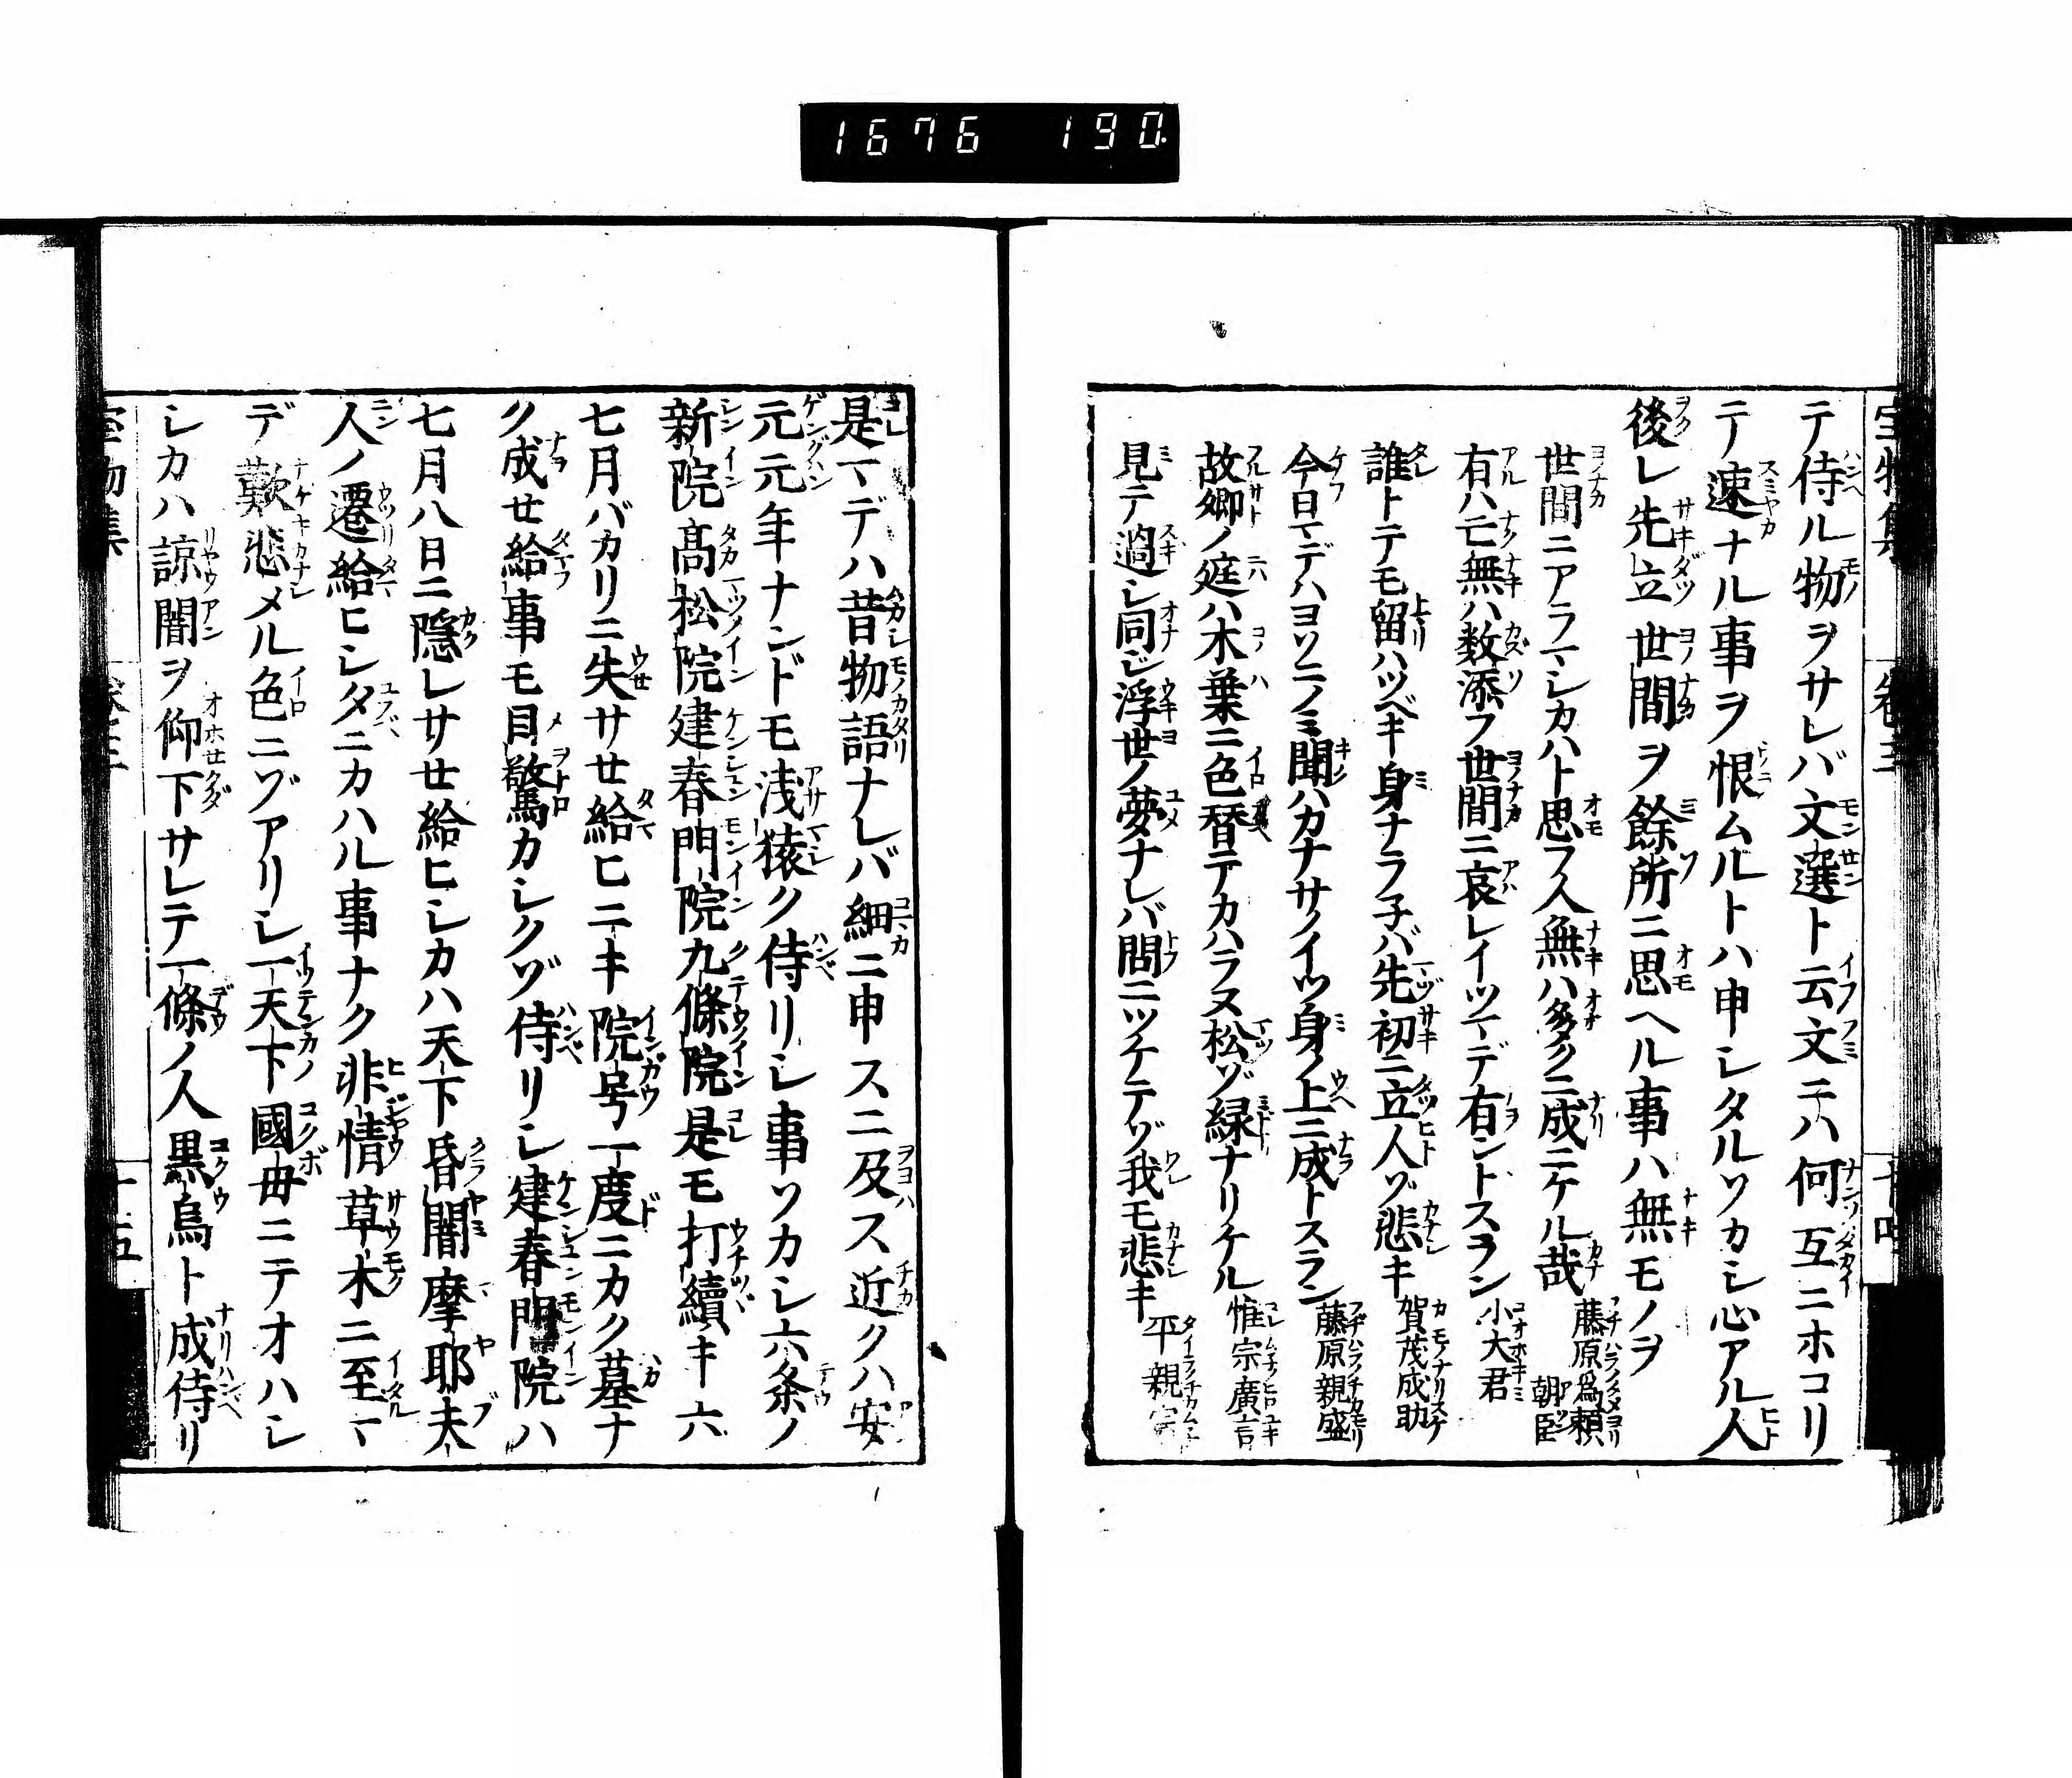 1676 190
テ侍ル物ヲサレバ文選ト云文ニハ何互ニホコリ
テ速ナル事ヲ恨ムルトハ申シタルソカシ心アル人
後レ先立世間ヲ餘所ニ思ヘル事ハ無モノヲ
世間ニアラマシカハト思フ人無ハ多クニ成ニケル哉 藤原爲頼朝臣
有ハ亡無ハ数添フ世間ニ哀レイツマデ有ントスラン 小大君
誰トテモ留ハツベキ身ナラ子バ先初ニ立人ゾ悲キ 賀茂成助
今日マデハヨソニノミ聞ハカナサノイツ身ノ上ニ成トスラン 藤原親盛
故郷ノ庭ハ木葉ニ色替テカハラヌ松ゾ緑ナリケル 惟宗廣言
見テ過シ同ジ浮世ノ夢ナレバ問ニツケテゾ我モ悲キ 平親宗
是マデハ昔物語ナレバ細ニ申スニ及ス近クハ安
元元年ナンドモ浅猿ク侍リシ事ソカシ六条ノ
新院髙松院建春門院九條院是モ打續キ六
七月バカリニ失サセ給ヒニキ院号一度ニカク墓ナ
ク成セ給事モ目驚カシクゾ侍リシ建春門院ハ
七月八日ニ隱レサセ給ヒシカハ天下昏闇摩耶夫
人ノ遷給ヒシタニカハル事ナク非情草木ニ至マ
デ歎悲メル色ニゾアリシ一天下國母ニテオハシ
シカハ諒闇ヲ仰下サレテ一條ノ人黒烏ト成侍リ